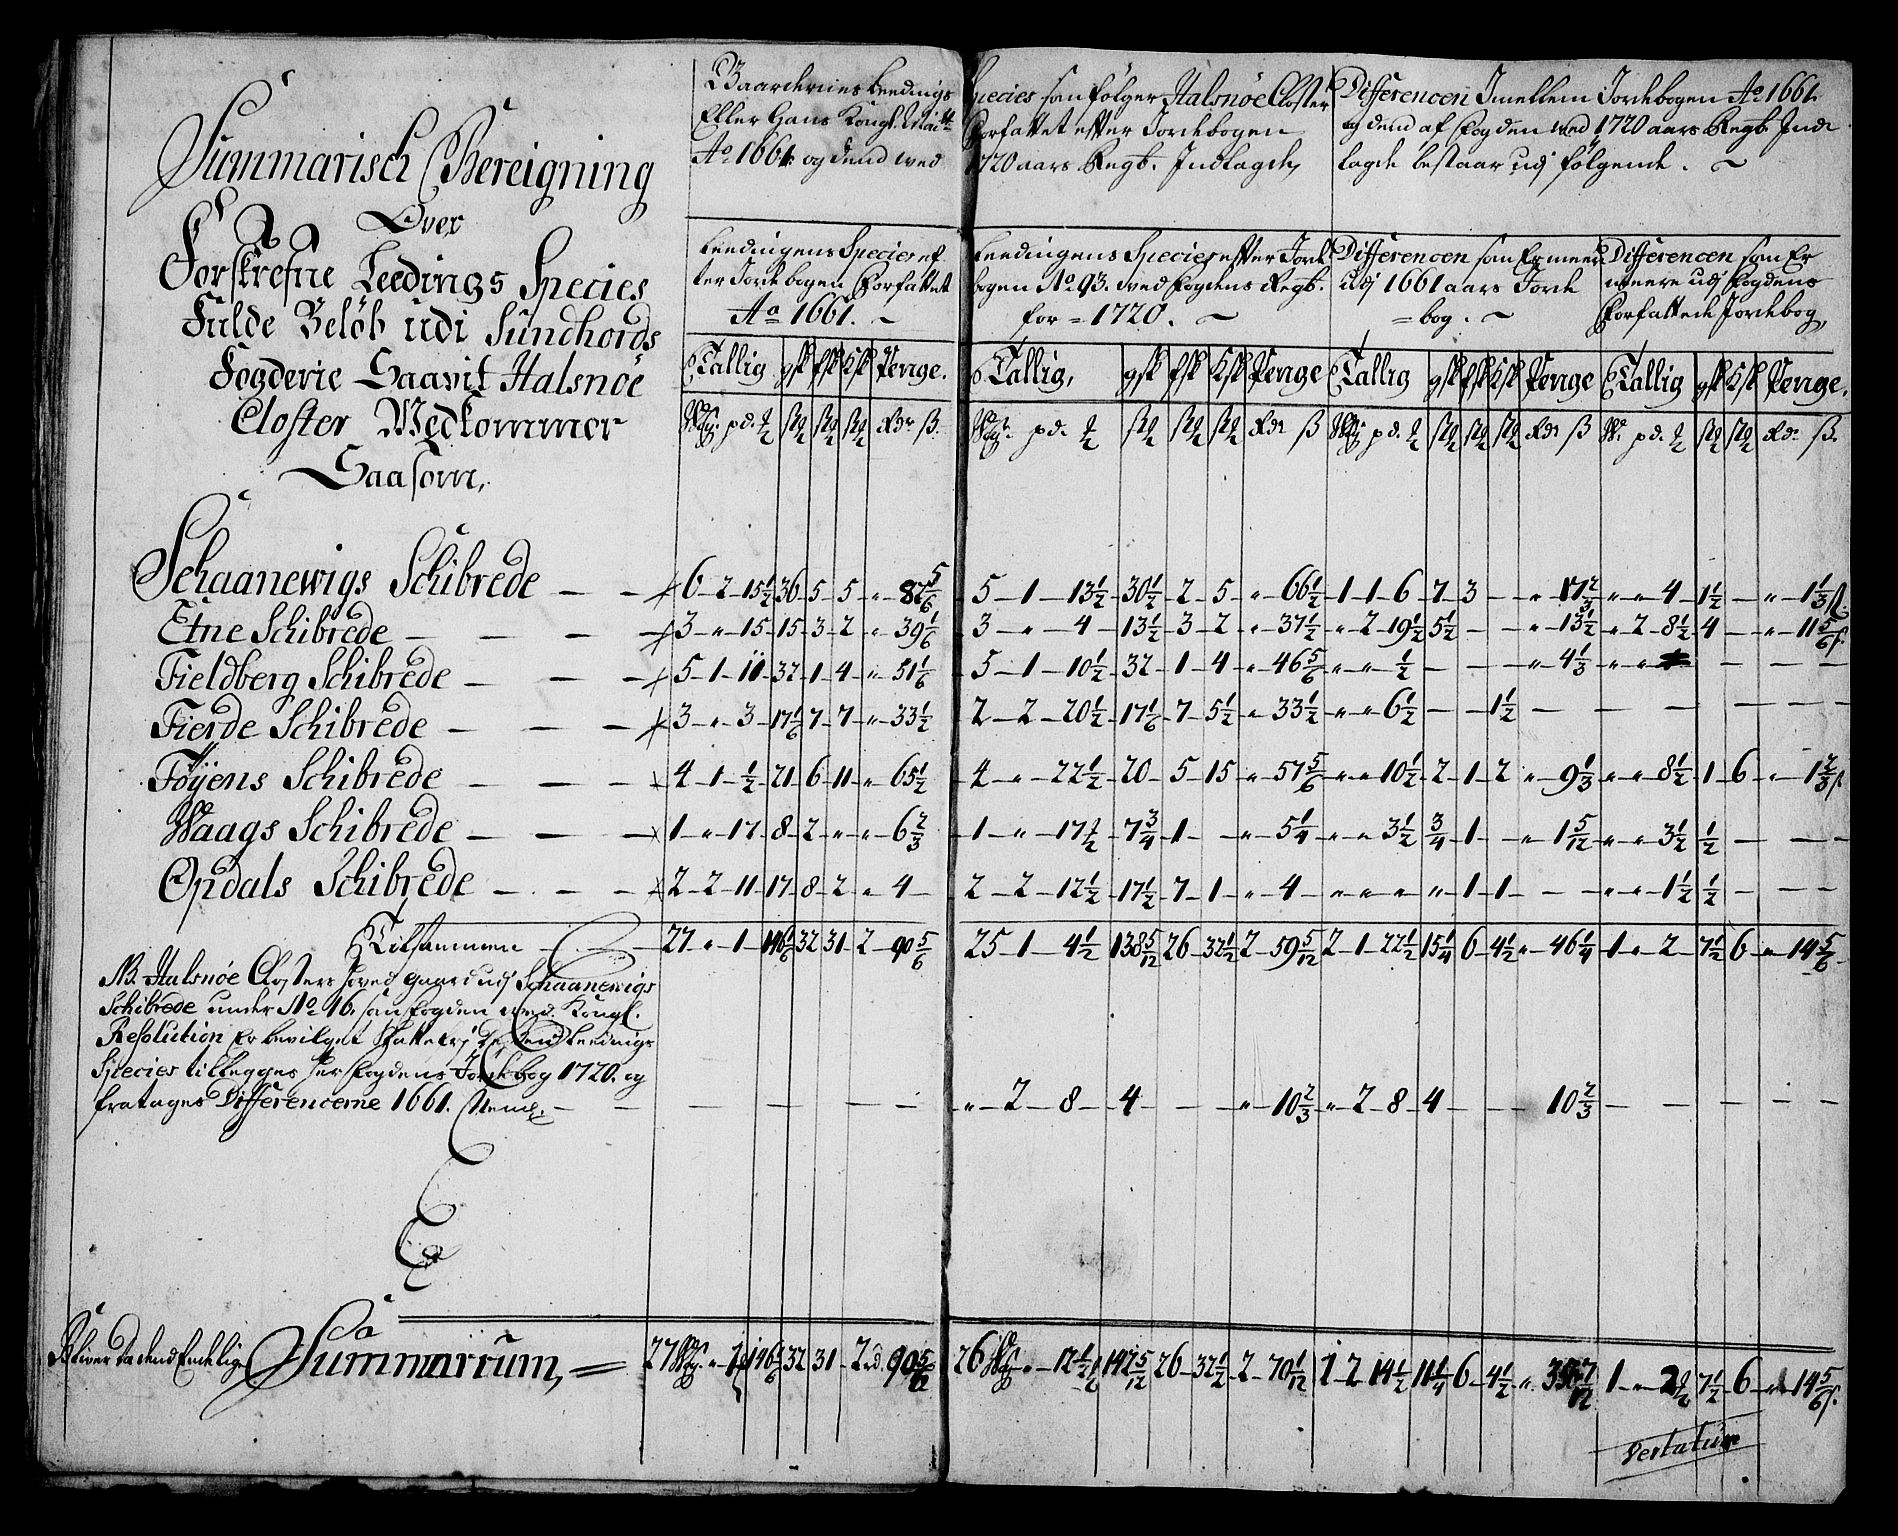 Summarisch Bereigning
Over
Forskrefne Leedings Species
Fulde Beløb udi Sundhords
Fogderie Saavit Halsnöe
Closter Wedkommer
Saasom,
Gaardernes Leedings Species som følger Halsnöe Closter
Eller Hans Kongl. Maitt Forfattet efter Jordebogen
Ao 1661. og dend wed 1720 aars Regb. Indlagde,
Differencen Imellem Jordebogen Ao 1661.
og dend af Fogden wed 1720 aars Regb. Ind
lagde bestaar udj følgende. ~
Leedingens Species ef
ter Jordebogen Forfattet
Ao 1661. ~
Leedingens Species efter Jorde
bogen No 93. wed Fogdens Regb.
for = 1720. ~
Differencen som Er meere
udj 1661 aars Jorde
= bog. ~
Differencen som Er
meere udj Fogdens
Forfattede Jordebog,
Tallig gsk fsk Ksk Penge. Tallig, gsk fsk Ksk Penge Tallig gsk fsk Ksk Penge Tallig gsk Ksk Penge.
Schaanewigs Schibrede — — 6 - 2 - 15 1/2 36 - 5 - 5 - " 82 5/6 5 — 1 — 13 1/2 30 1/2 - 2 - 5 - " 66 1/2 1 - 1 - 6 7 - 3 — " 17 2/3 " - " - 4 - 1 1/2 — " - 1 1/3 s.
Etne Schibrede — — — 3 - " - 15 - 15 - 3 - 2 - " 39 1/6 3 — " — 4 - 13 1/2 - 3 - 2 - " 37 1/2 - " - 2 - 19 1/2 5 1/2 — " 13 1/2 " - 2 - 8 1/2 4 — " - 11 5/6 s.
Fieldberg Schibrede — — 5 - 1 - 11 - 32 - 1 - 4 - " 51 1/6 5 — 1 — 10 1/2 32 - 1 - 4 - " 46 5/6 - " - " 1/2 — — — " 4 1/3 " - " — — — —
Fierde Schibrede — — — 3 - " - 3 - 17 1/6 - 7 - 7 - " 33 1/2 2 — 2 — 20 1/2 - 17 1/6 - 7 - 5 1/2 - " 33 1/2 - " - " 6 1/2 — — 1 1/2 — — — — —
Föÿens Schibrede — — — 4 - 1 - 1/2 21 - 6 - 11 - " 65 1/2 4 — " — 22 1/2 20 - 5 - 15 - " 57 5/6 - " - " 10 1/2 2 - 1 - 2 - " 9 1/3 " - " 8 1/2 1 - 6 - " - 1 2/3 s
Waags Schibrede — — 1 - " - 17 - 8 - 2 - " - " 6 2/3 1 — " — 17 1/2 7 3/4 - 1 — " 5 1/4 - " - " 3 1/2 3/4 - 1 — " 1 5/12 - " - " 3 1/2 1/2 — — —
Opdals Schibrede — — — 2 - 2 - 11 - 17 - 8 - 2 - " 4 — 2 — 2 — 12 1/2 - 17 1/2 - 7 - 1 - " 4 — " - " - " " - 1 - 1 — — " - " 1 1/2 1/2 — — —
Tilsammen — 27 - " - 1 - 146 1/6 32 31 - 2 — 90 5/6 25 — 1 — 4 1/2 138 5/12 26 - 32 1/2 - 2 - 59 5/12 - 2 - 1 - 22 1/2 - 15 1/4 6 - 4 1/2 - " 46 1/4 - 1 - " - 2 - 7 1/2 6 - " - 14 5/6
NB. Halsnöe Closters hoved gaard udj Schaanewigs
Schibrede under No 16. som Fogden wed Kongl.
Resolution Er bevilget Skattefrj dend Leedings
Species tillegges her Fogdens Jordebog 1720. og
fratages Differencerne 1661. Neml. — — — — — — " - 2 — 8 - 4 — — " - 10 2/3 - " - 2 - 8 - 4 — — 10 2/3 — — — — —
Bliver da dend Endelige Summarum, = 27 " - 1 146 1/6 32 31 - 2 90 5/6 26 " - 12 1/2 142 5/12 26 - 32 1/2 - 2 - 70 1/12 1 - 2 - 14 1/2 - 11 1/4 6 - 4 1/2 - " 35 7/12 1 - " - 2 7 1/2 6 - " 14 5/6 s.
Vertatur